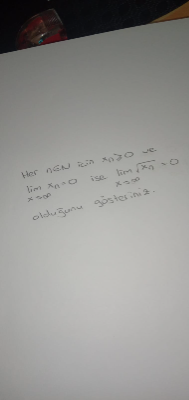 Her n∈N için xₙ≥0 ve
lim xₙ=0 ise lim √xₙ = 0
x→∞ x→∞
olduğunu gösteriniz.